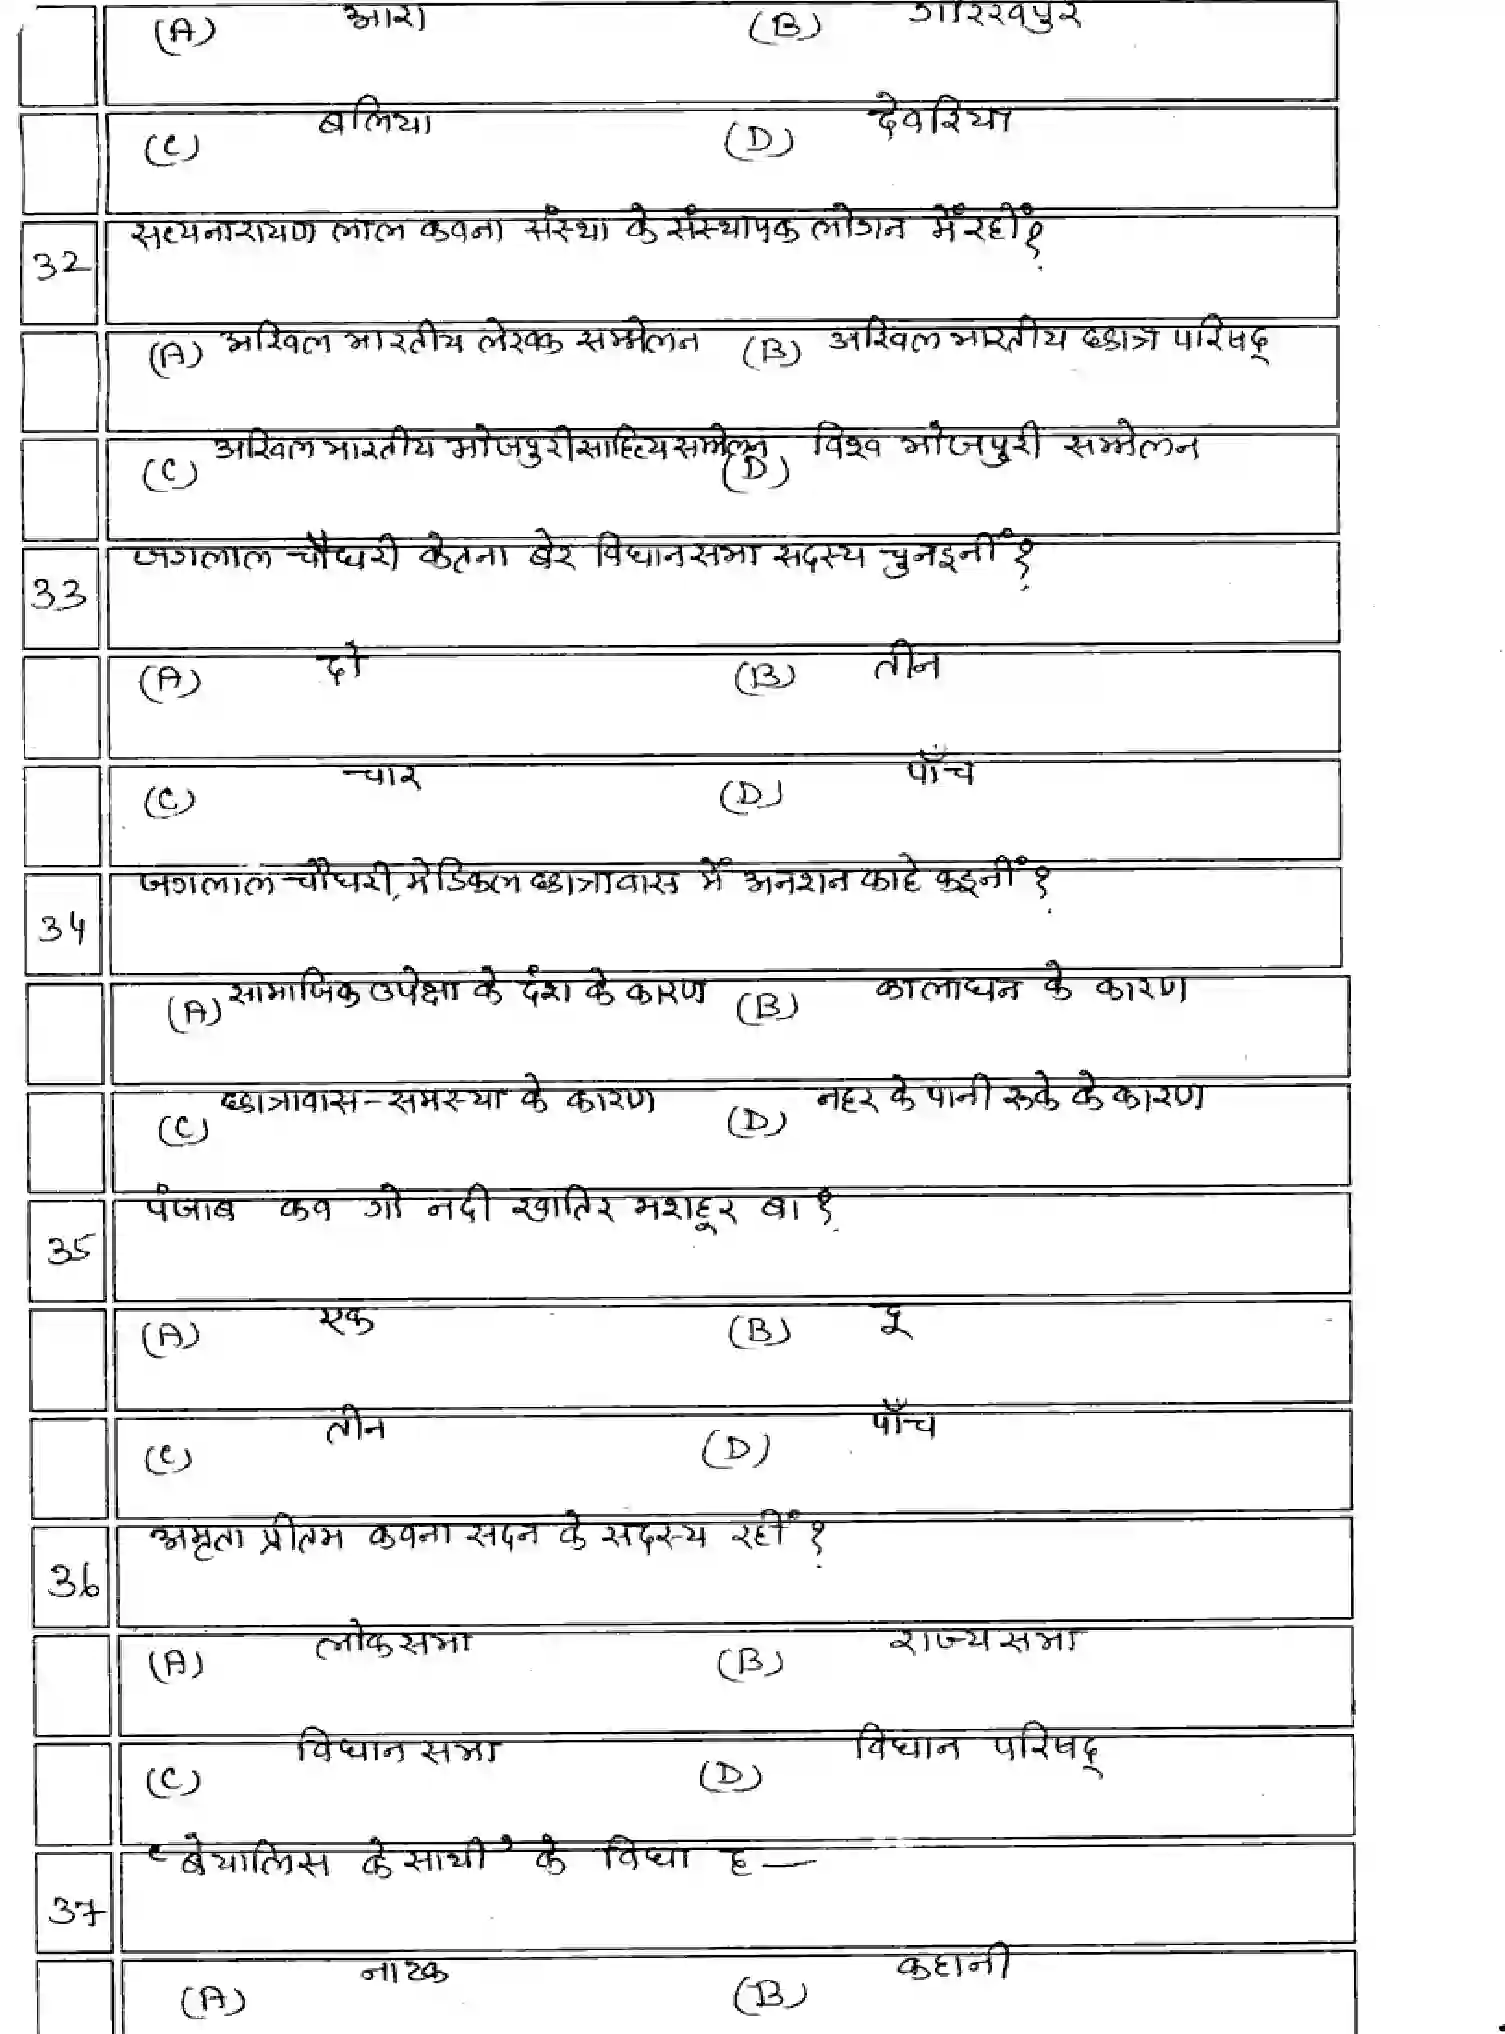 (A) आरा (B) गोरखपुर
(C) बलिया (D) देवरिया
32 सत्यनारायण लाल कवना संस्था के संस्थापक लोगन में रहीं?
(A) अखिल भारतीय लेखक सम्मेलन (B) अखिल भारतीय छात्र परिषद्
(C) अखिल भारतीय भोजपुरी साहित्य सम्मेलन (D) विश्व भोजपुरी सम्मेलन
33 जगलाल चौधरी केतना बेर विधानसभा सदस्य चुनइनीं?
(A) दो (B) तीन
(C) चार (D) पाँच
34 जगलाल चौधरी, मेडिकल छात्रावास में अनशन काहे कइनीं?
(A) सामाजिक उपेक्षा के दंश के कारण (B) कालाधन के कारण
(C) छात्रावास-समस्या के कारण (D) नहर के पानी रूके के कारण
35 पंजाब कव गो नदी खातिर मशहूर बा?
(A) एक (B) दू
(C) तीन (D) पाँच
36 अमृता प्रीतम कवना सदन के सदस्य रहीं?
(A) लोकसभा (B) राज्यसभा
(C) विधान सभा (D) विधान परिषद्
37 'बेयालिस के साथी' के विधा ह —
(A) नाटक (B) कहानी